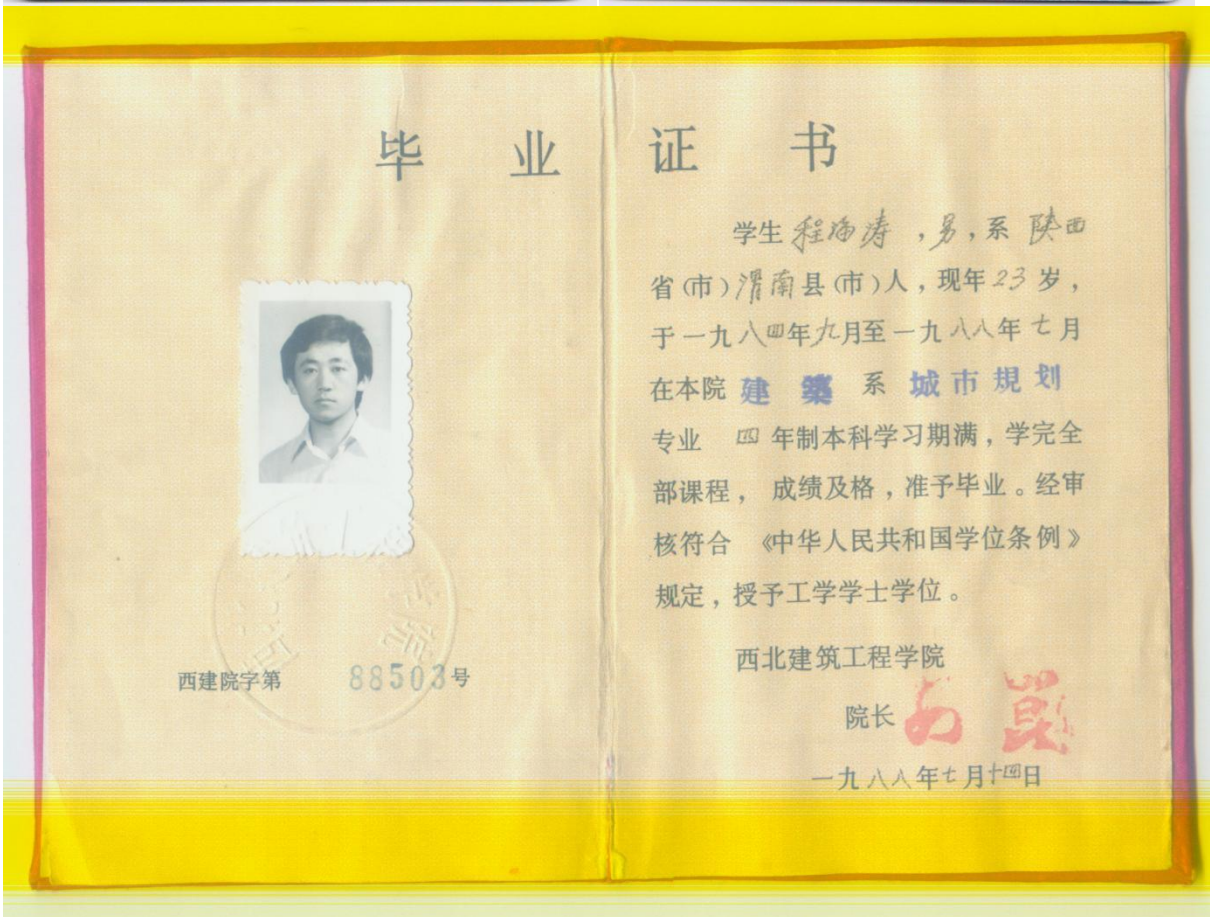 毕业证书
学生程海涛，男，系陕西
省(市)渭南县(市)人，现年23岁，
于一九八四年九月至一九八八年七月
在本院建築系城市規划
专业四年制本科学习期满，学完全
部课程，成绩及格，准予毕业。经审
核符合《中华人民共和国学位条例》
规定，授予工学学士学位。
西北建筑工程学院
院长
一九八八年七月十四日
西建院字第88503号